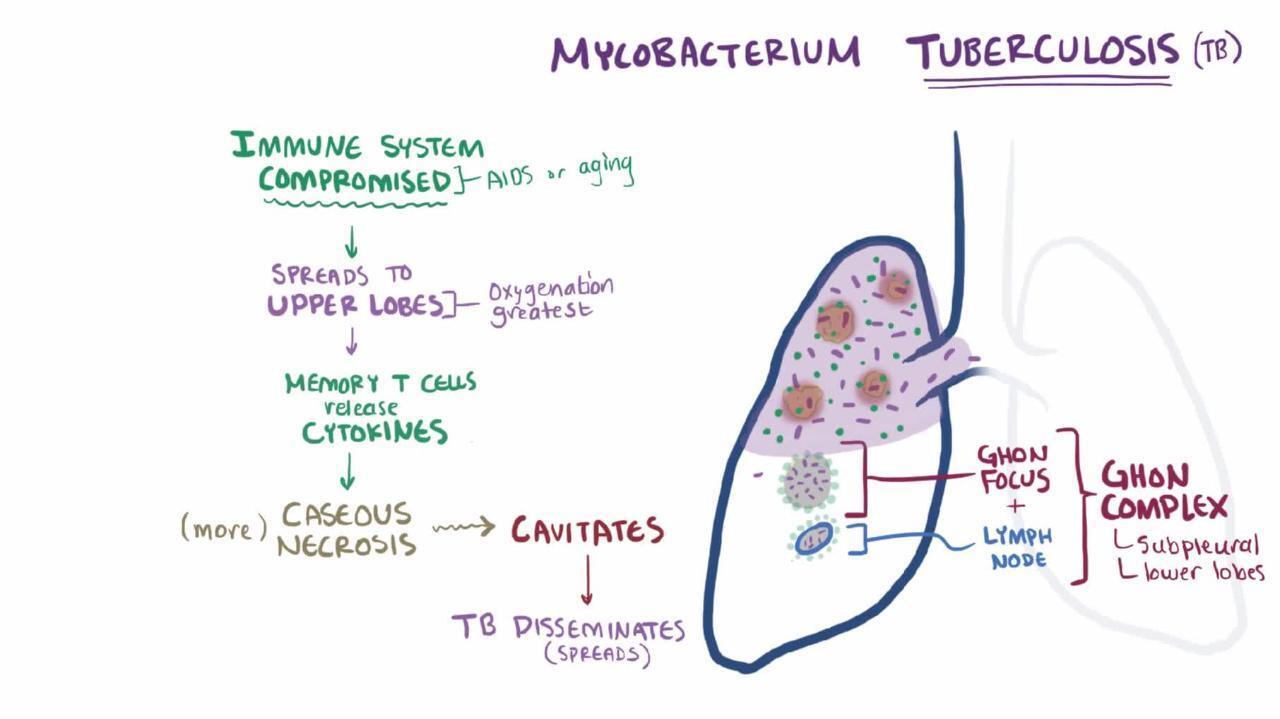 MYCOBACTERIUM TUBERCULOSIS (TB)
IMMUNE SYSTEM
COMPROMISED
AIDS or aging
SPREADS TO
UPPER LOBES
Oxygenation
greatest
MEMORY T CELLS
release
CYTOKINES
(more) CASEOUS
NECROSIS
CAVITATES
TB DISSEMINATES
(SPREADS)
GHON
FOCUS
+
LYMPH
NODE
GHON
COMPLEX
subpleural
lower lobes